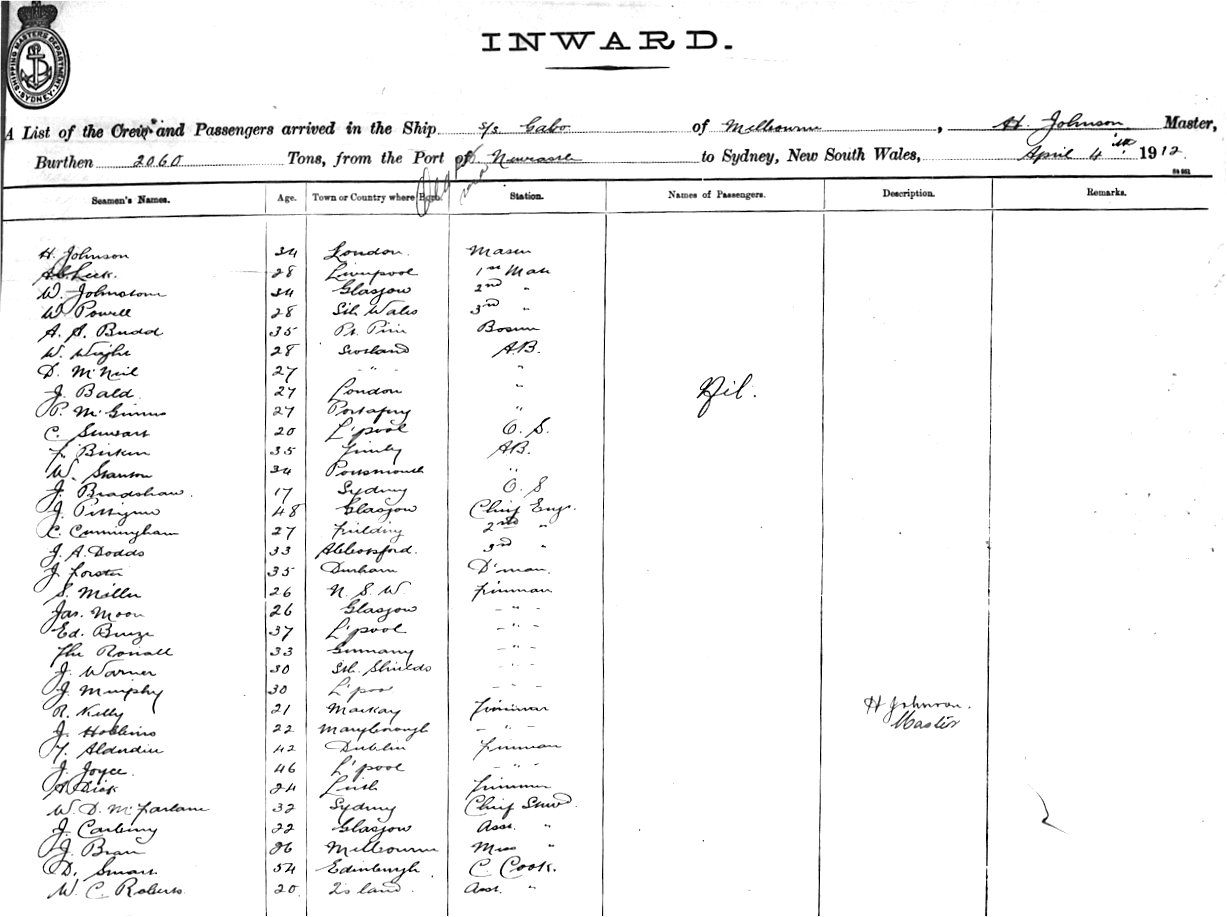 SHIPPING MASTERS DEPARTMENT SYDNEY
INWARD.
A List of the Crew and Passengers arrived in the Ship s/s Gabo of Melbourne, H. Johnson Master,
Burthen 2060 Tons, from the Port of Newcastle to Sydney, New South Wales, April 4th 1912
Seamen's Names. Age. Town or Country where Born. Station. Names of Passengers. Description. Remarks.
H. Johnson 34 London. Master
28 Liverpool 1st Mate
W. Johnstone 34 Glasgow 2nd "
W. Powell 28 Sth Wales 3rd "
A. S. Budd 35 Pt. Pirie Bosun
W. Wight 28 Scotland A.B.
D. McNeil 27 " "
J. Bald 27 London "
P. McGinnis 27 "
C. Stewart 20 L'pool O. S.
Birken 35 AB.
W. Stanton 34 Portsmouth "
J. Bradshaw. 17 Sydney O. S
J. 48 Glasgow Chief Engr.
C. Cunningham 27 Fielding 2nd "
J. A. Dodds 33 Abbotsford. 3rd "
J. Forster 35 Durham D'man.
S. Miller 26 N. S. W. Fireman
Jas. Moon 26 Glasgow - " -
Ed. 37 L'pool - " -
33 Germany - " -
J. Warner 30 Sth. Shields - " -
J. Murphy 30 L'poo - " -
R. Kelly 21 Mackay
J. Hobbins 22 Maryborough - " -
42 Dublin Fireman
J. Joyce. 46 L'pool - " -
Dick 24 Leith
W. D. McFarlane 32 Sydney Chief Stew'd.
J. 22 Glasgow Asst. "
J. 26 Melbourne Mess "
D. Smart 54 Edinburgh C. Cook.
W. C. Roberts. 20 Asst. "
Nil.
H Johnson.
Master